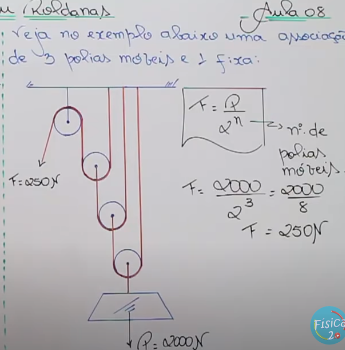 Roldanas
Aula 08
Veja no exemplo abaixo uma associação
de 3 polias móveis e 1 fixa:
F = P / 2^n → nº de polias móveis.
F=250N
F = 2000 / 2^3 = 2000 / 8
F = 250N
P = 2000N
FÍSICA
2.0